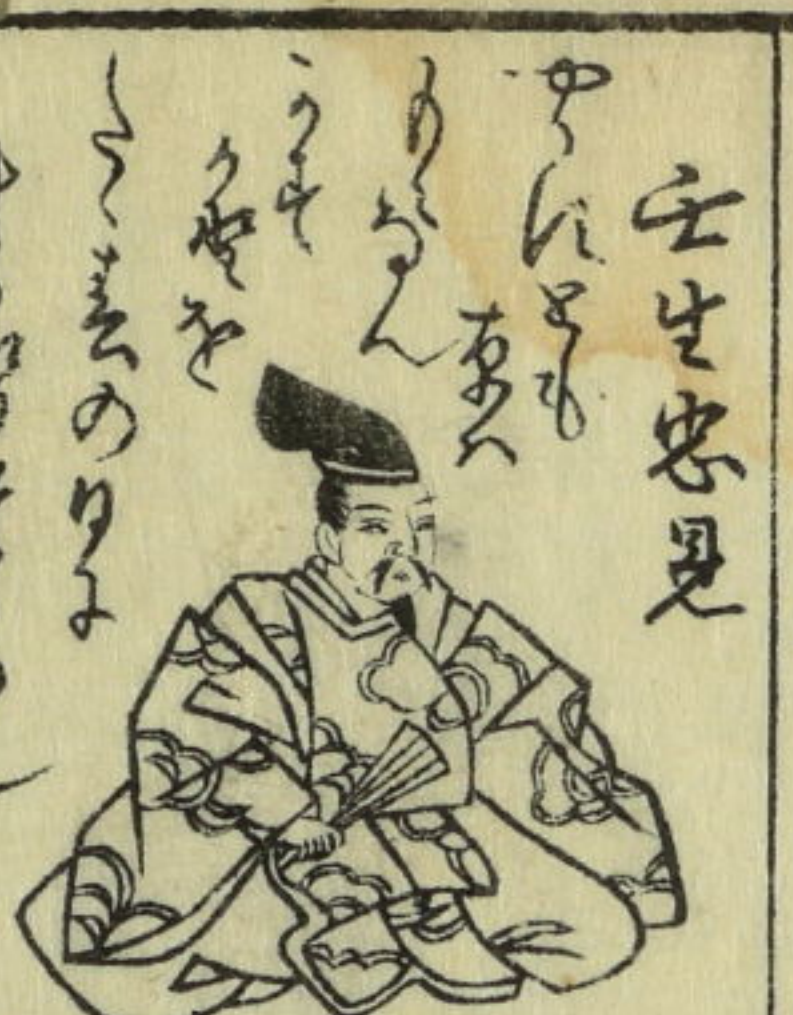 壬生忠見
やかすとも
草ハ
もえなん
かす
か野を
たゝ春の日に